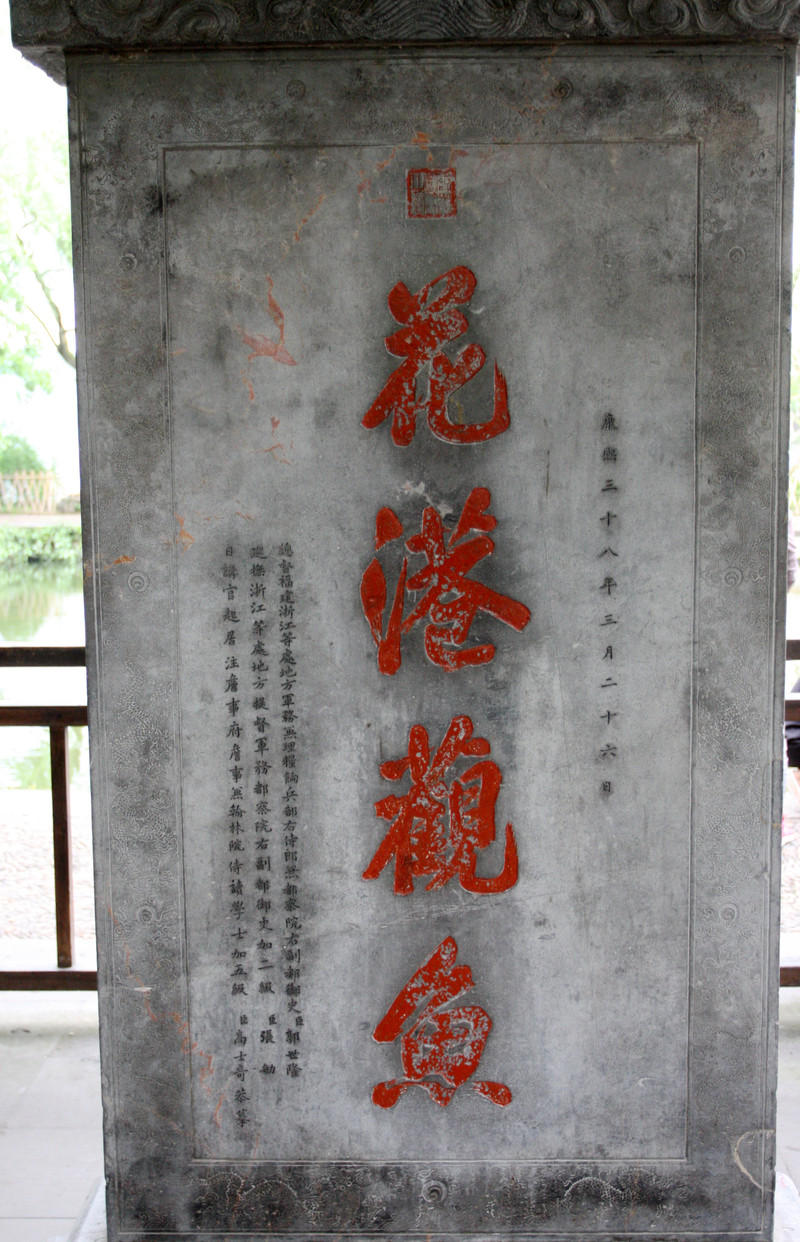 康熙三十八年三月二十六日
花港觀魚
總督福建浙江等處地方軍務兼理糧餉兵部右侍郎兼都察院右副都御史臣郭世隆
巡撫浙江等處地方提督軍務都察院右副都御史加二級 臣張勄
日講官起居注詹事府詹事兼翰林院侍讀學士加五級 臣高士奇恭摹